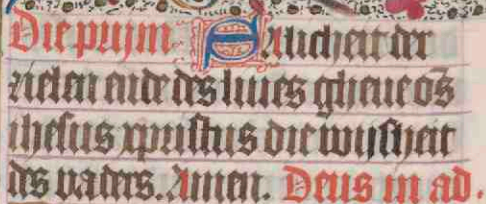 Die prijm. Salicheit der
zielen ende des liues gheue os
ihesus xpristus die wijsheit
des vaders. Amen. Deus in ad.